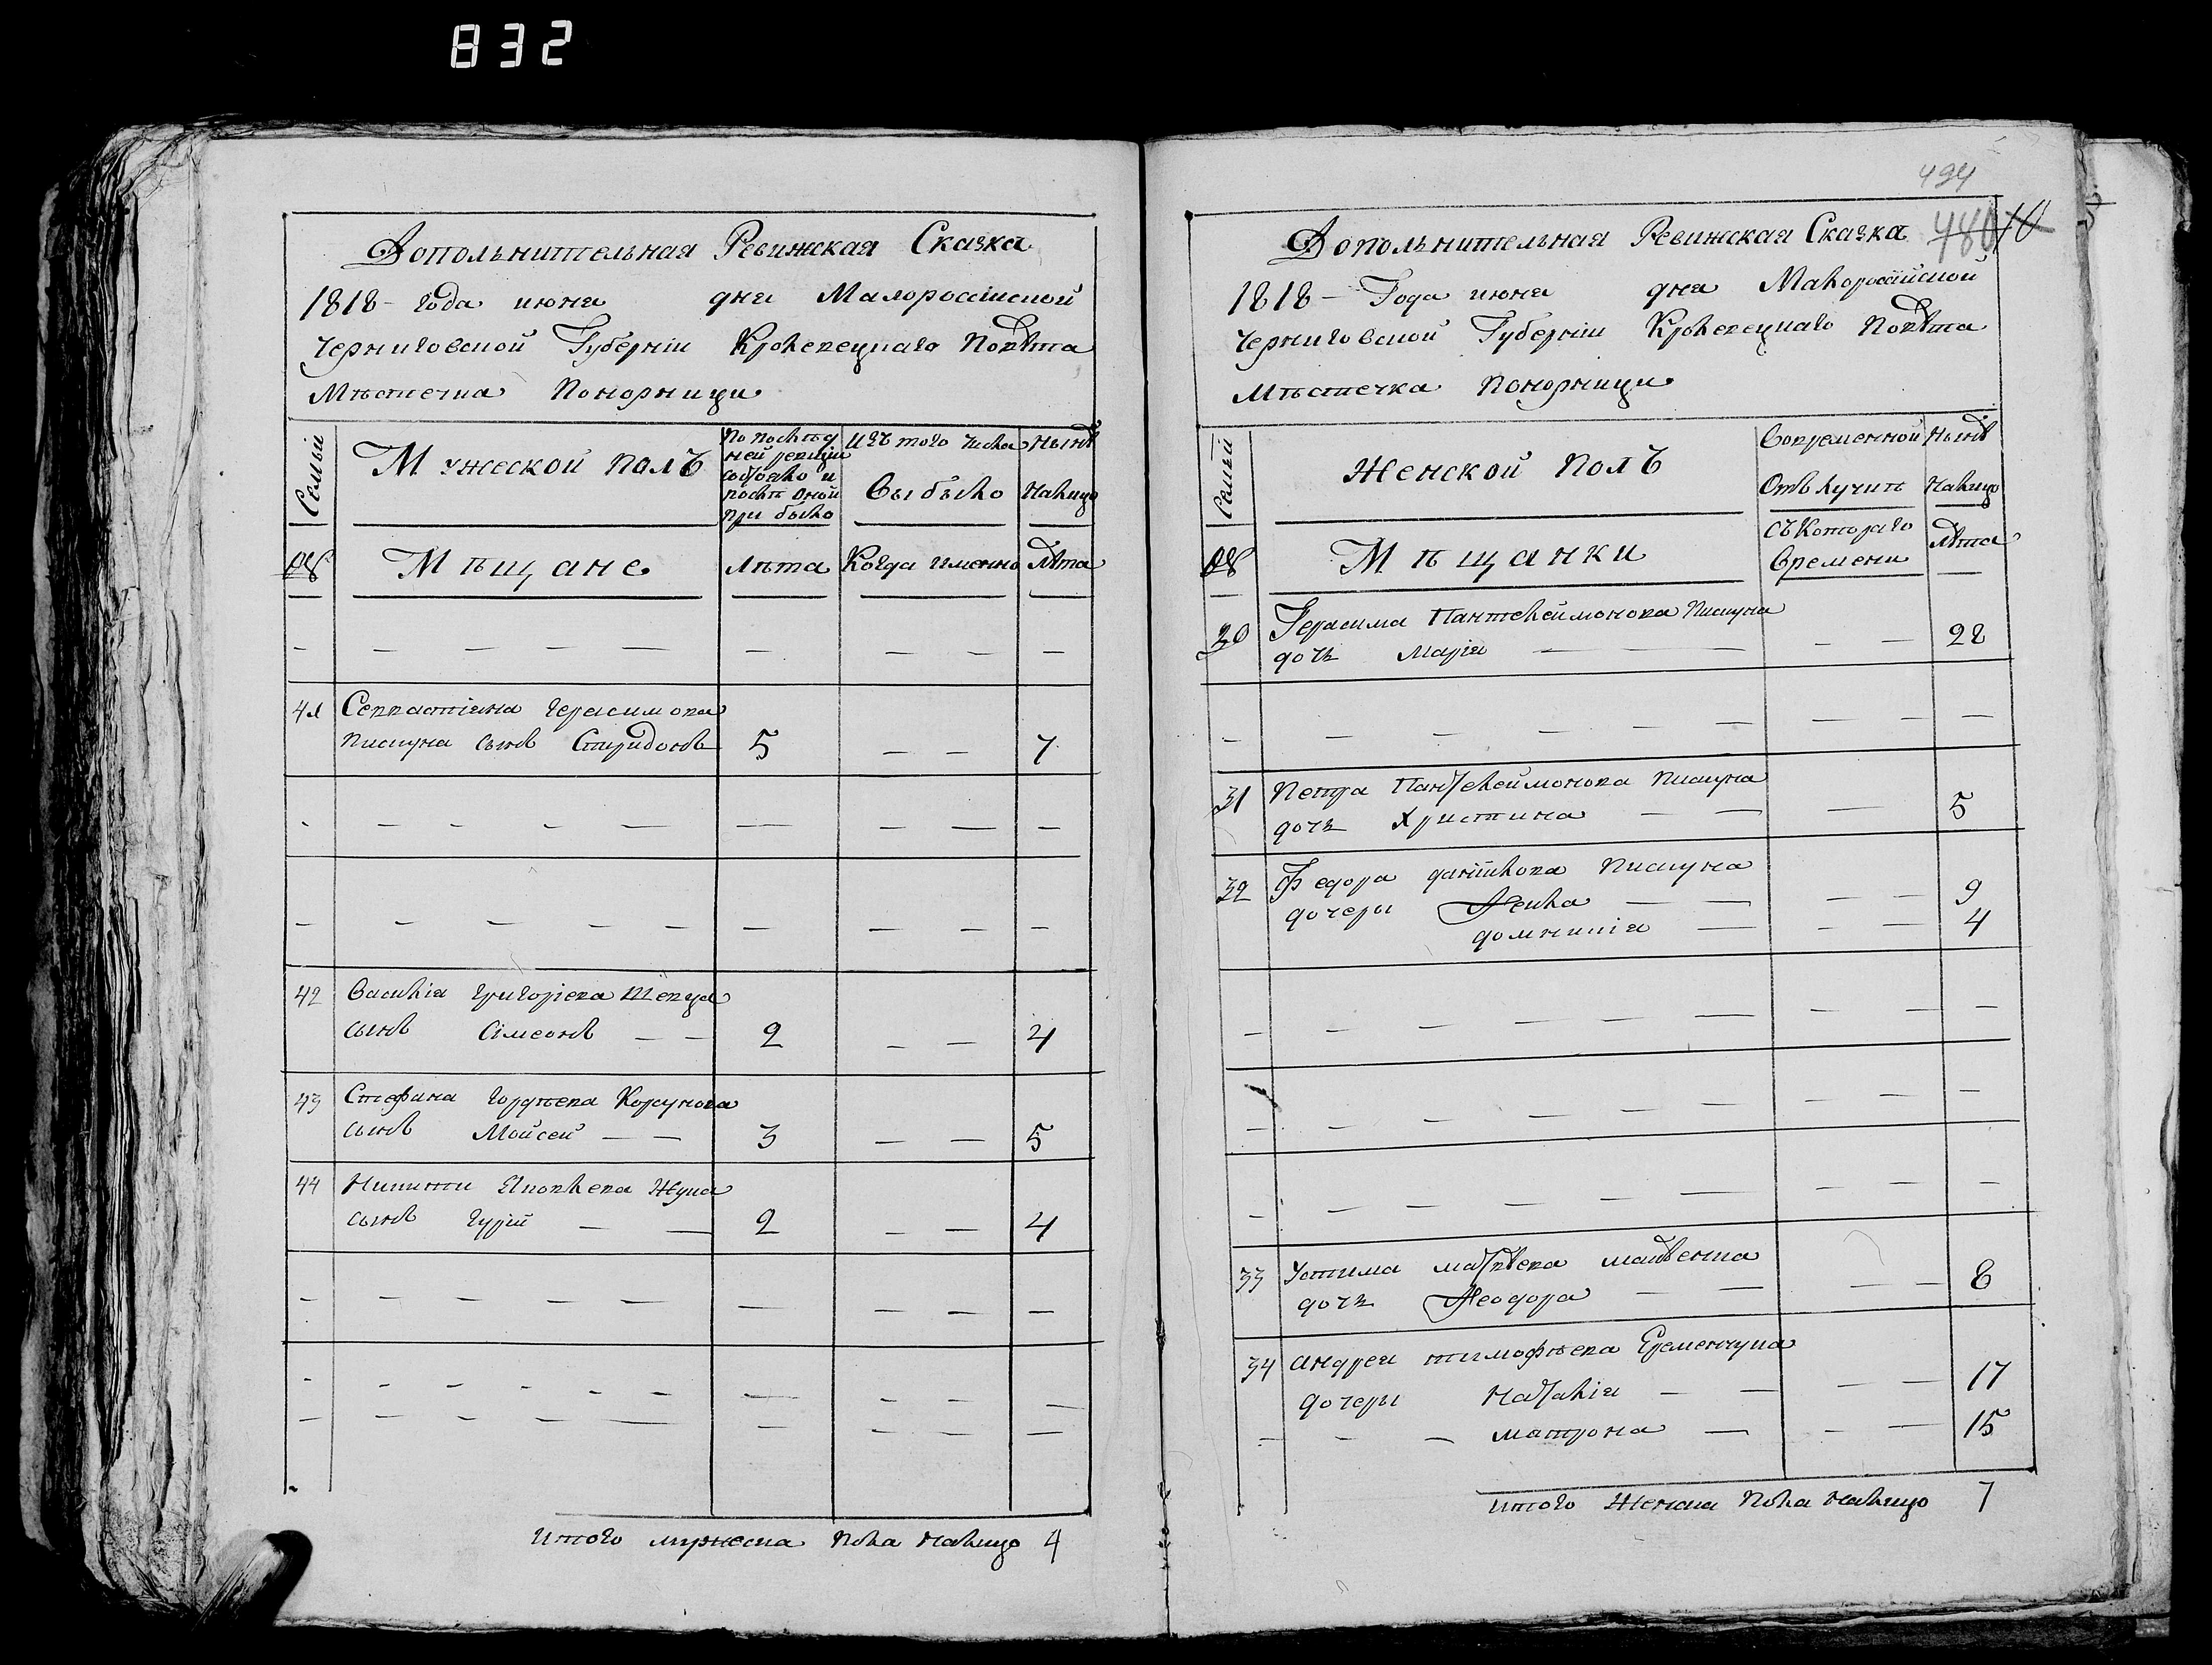 832
Дополънителъная Ревижская Сказка
1818 – года июня дня Малороссійской
Черниговской Губерніи Кролевецкаго Повѣта
Мѣстечка Понорници
Семьи
Мужеской полъ
По послѣд
ней ревизіи
состояло и
послѣ оной
при было
Изъ того числа
Выбыло
Нынѣ
Налицо
№
Мѣщане
Лѣта
Когда именно
Лѣта
41 Севастіяна Герасимова
Писуна сынъ Спиридонъ 5 — — 7
42 Василія Григоріева Шевца
сынъ Сімеонъ — — 2 — — 4
43 Стефана Гордѣева Корсунова
сынъ Мойсей — — 3 — — 5
44 Никити Яковлева Жука
сынъ Гурій — — 2 — — 4
Итого мужеска пола налицо 4
494
480 10
Дополънителъная Ревижская Сказка
1818 – Года июня дня Малороссійской
Черниговской Губерніи Кролевецкаго Повѣта
Мѣстечка Понорници
Семьи
Женской полъ
Вовременной
Отълучиѣ
Нынѣ
Налицо
№
Мѣщанки
съ Котораго
Времени
Лѣта
30 Герасима Пантелеймонова Писуна
дочъ Марія — — — — — 28
31 Петра Пантелеймонова Писуна
дочъ Христина — — — 5
32 Федора Данійлова Писуна
дочеры Фекла — — — — 9
Домникія — — — 4
33 Устима Матвѣева
дочъ Феодора — — — — 8
34 Андрея Тимофѣева Еременчука
дочеры Наталія — — — — 17
— — — Матрона — — — 15
Итого Женска Пола налицо 7